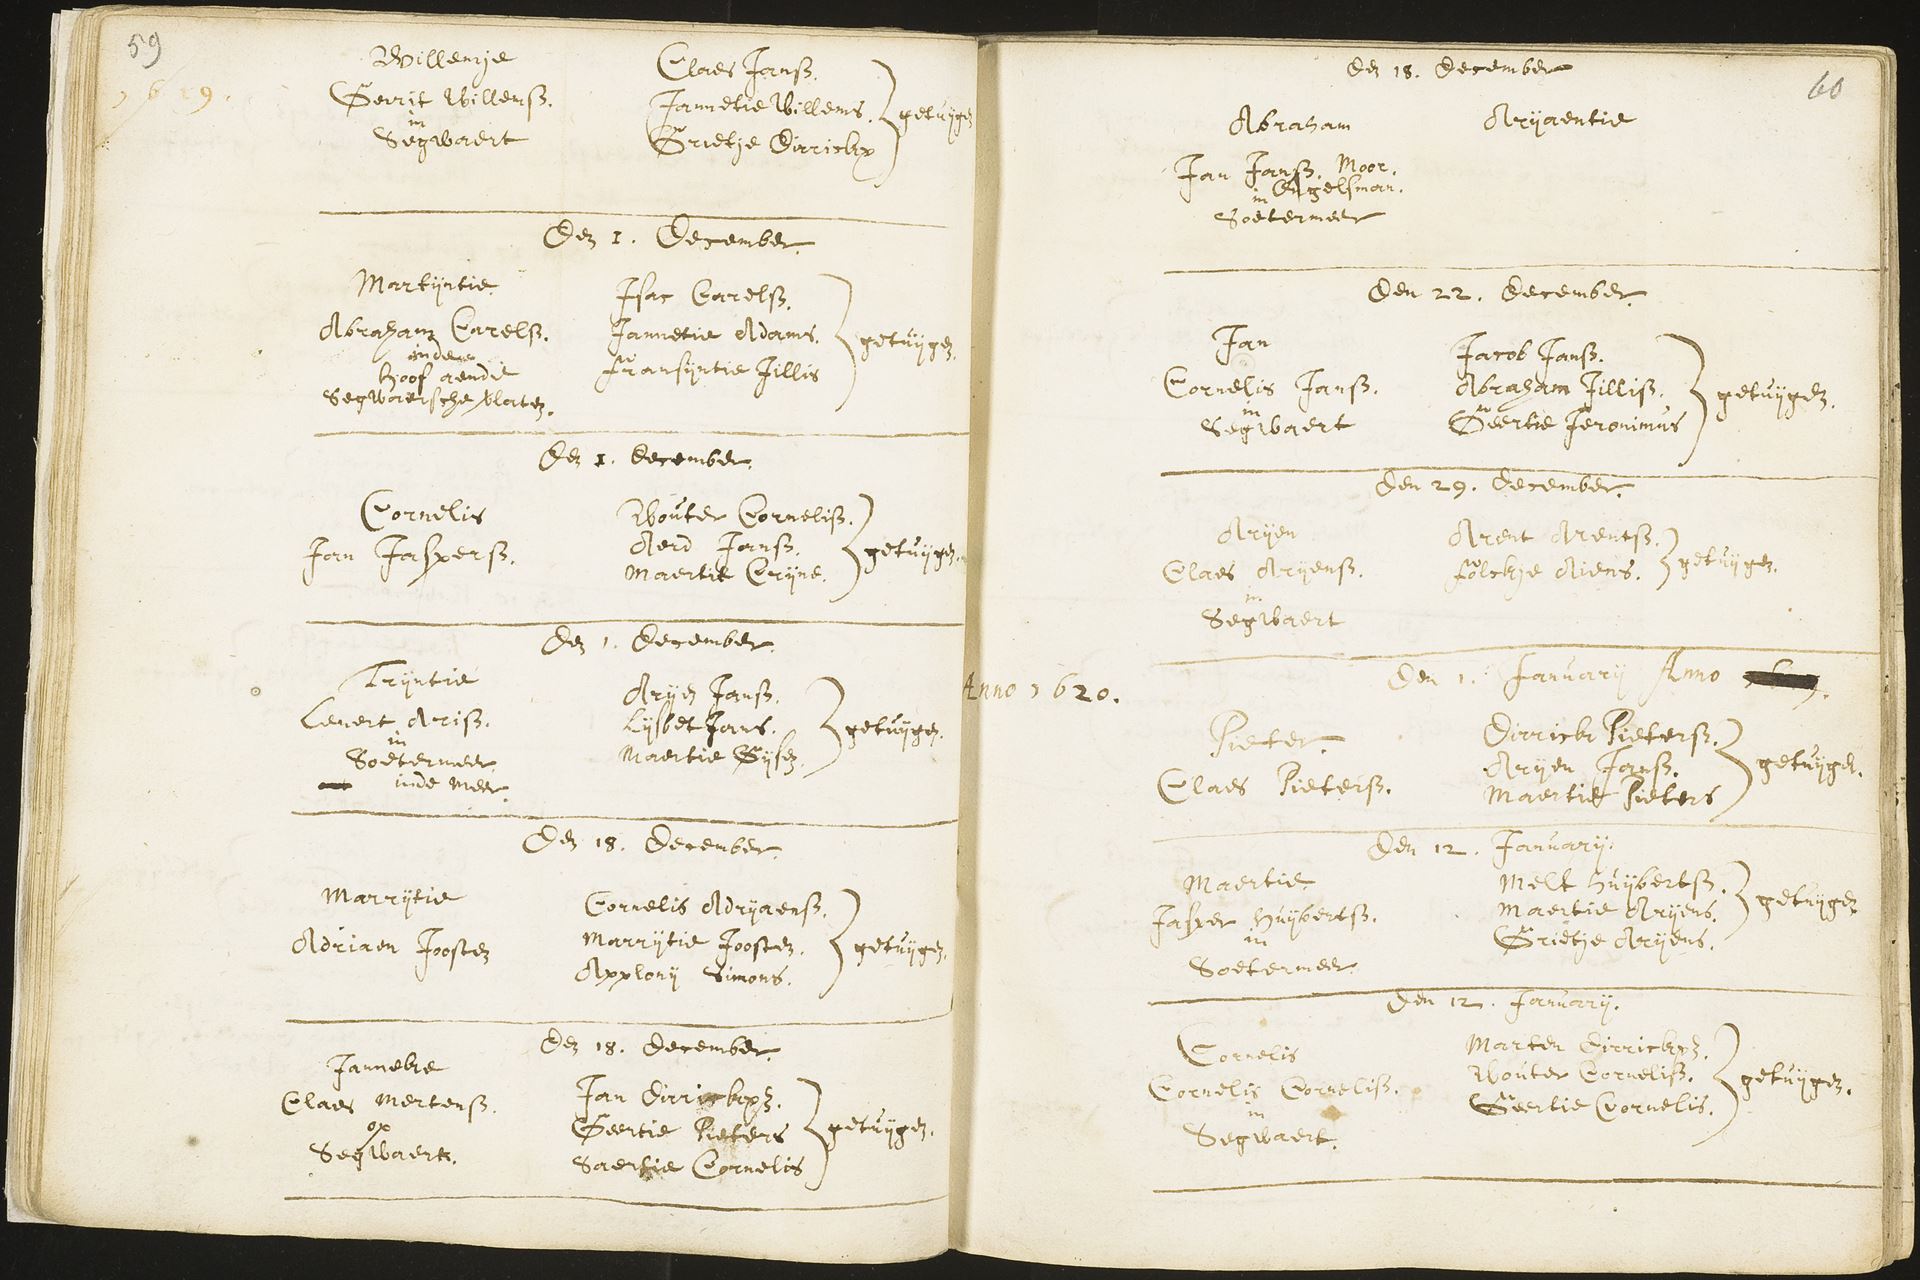 59
1619.
Willemje
Gerrit Willemsz.
in
Segwaert
Claes Jansz.
Jannetie Willems.
Grietje Dirricks
getuijgen
Den 1. December.
Martijntie
Abraham Carelsz.
inde
hoof aende
Segwaersche Vlaten.
Isac Carelsz.
Jannetie Adams.
Fransijntie Jillis
getuijgen.
Den 1. December.
Cornelis
Jan Jaspersz.
Wouter Cornelisz.
Aerd Jansz.
Maertie Crijne.
getuijgen.
Den 1. December.
Trijntie
Lenert Arisz.
in
Soetermeer
inde Meer.
Arijen Jansz.
Lijsbet Jans.
Maertie Gijsen.
getuijgen.
Den 18. December.
Marrijtie
Adriaen Joosten
Cornelis Adrijaensz.
Marrijtie Joosten.
Applonij Simons.
getuijgen.
Den 18. December.
Janneke
Claes Mertensz.
op
Segwaert.
Jan Dirricksz.
Geertie Pieters
Saertie Cornelis
getuijgen.
60
Den 18. December
Abraham
Jan Jansz. Moor.
Engelsman.
in
Soetermeer
Arijaentie
Den 22. December.
Jan
Cornelis Jansz.
in
Segwaert
Jacob Jansz.
Abraham Jillisz.
Geertie Jeronimus
getuijgen.
Den 29. December.
Arijen
Claes Arijensz.
in
Segwaert
Arent Arentsz.
Folckje Aiens.
getuijgen.
Anno 1620.
Den 1. Januarij Anno
Pieter.
Claes Pietersz.
Dirrick Pietersz.
Arijen Jansz.
Maertie Pieters
getuijgen.
Den 12. Januarij.
Maertie
Jasper Huijbertsz.
in
Soetermeer
Melt Huijbertsz.
Maertie Arijens.
Grietje Arijens.
getuijgen
Den 12. Januarij.
Cornelis
Cornelis Cornelisz.
in
Segwaert.
Marten Dirricksz.
Wouter Cornelisz.
Geertie Cornelis.
getuijgen.